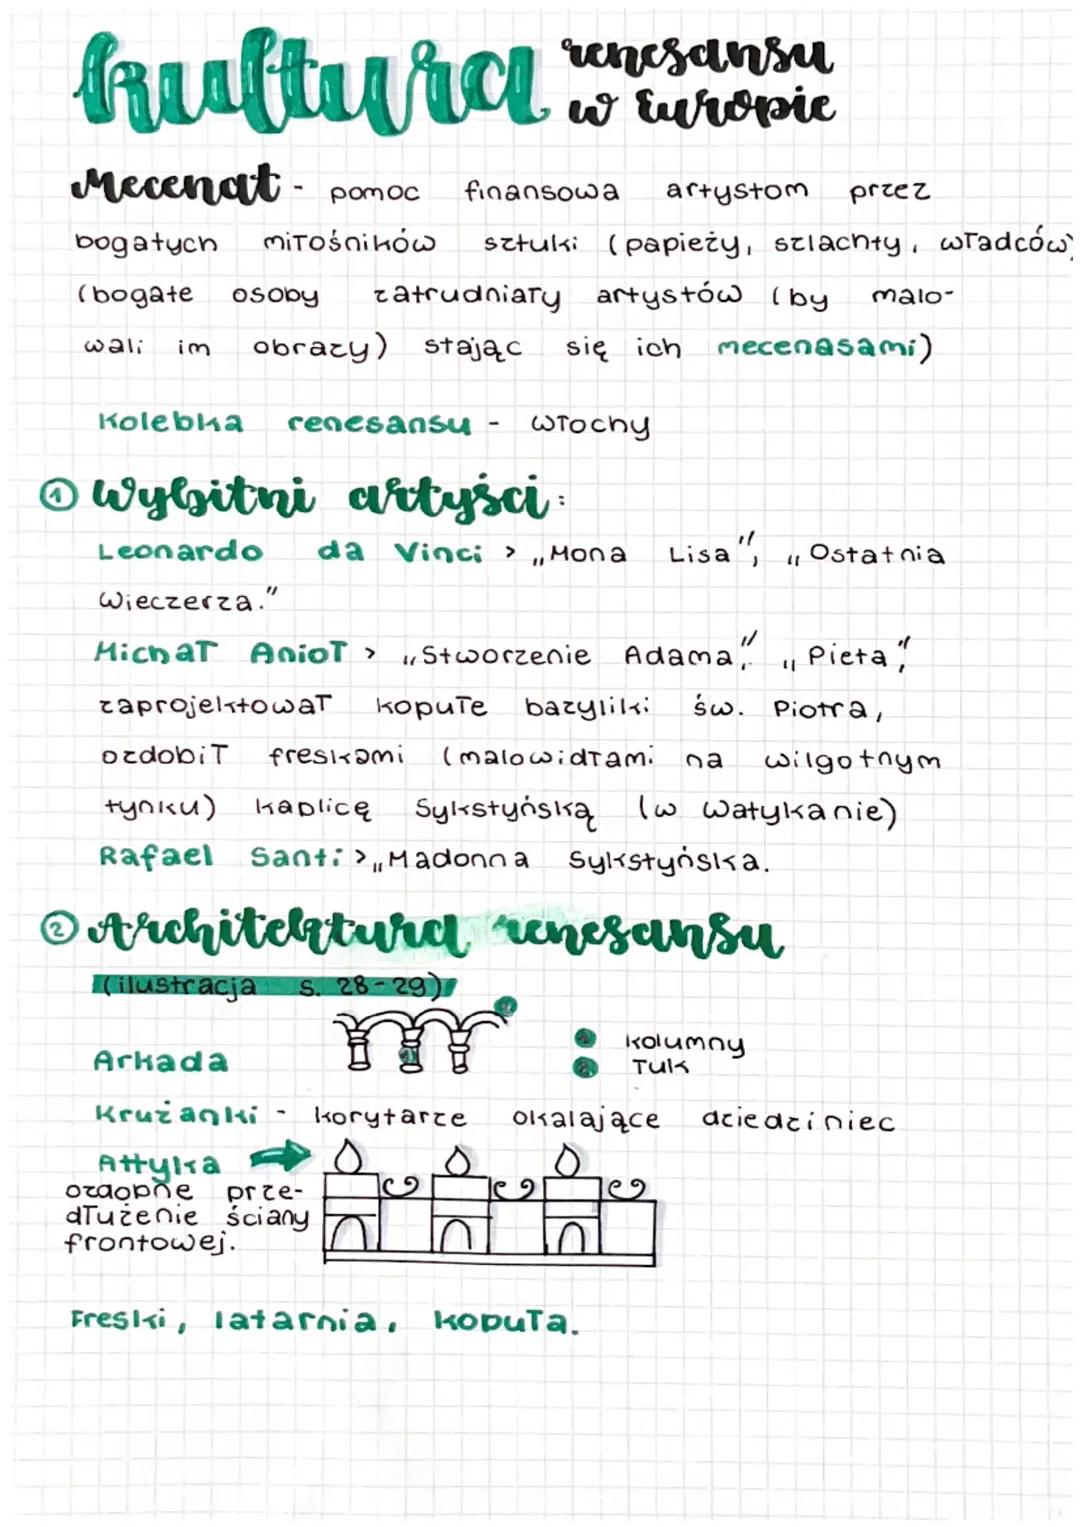 kultura renesansu
w Europie
Mecenat - pomoc finansowa artystom przez
bogatych miłośników sztuki (papieży, szlachty, władców)
(bogate osoby zatrudniały artystów (by malo-
wali im obrazy) stając się ich mecenasami)
Kolebka renesansu - Włochy
① Wybitni artyści:
Leonardo da Vinci > „Mona Lisa", „Ostatnia
Wieczerza."
Michał Anioł > „Stworzenie Adama", „Pieta",
zaprojektował kopułe bazyliki św. Piotra,
ozdobił freskami (malowidłami na wilgotnym
tynku) kaplicę Sykstyńską (w Watykanie)
Rafael Santi > „Madonna Sykstyńska.
② Architektura renesansu
(ilustracja s. 28-29)
Arkada
1 kolumny
2 łuk
Krużganki - korytarze okalające dziedziniec
Attyka
ozdobne prze-
dłużenie ściany
frontowej.
Freski, latarnia, kopuła.